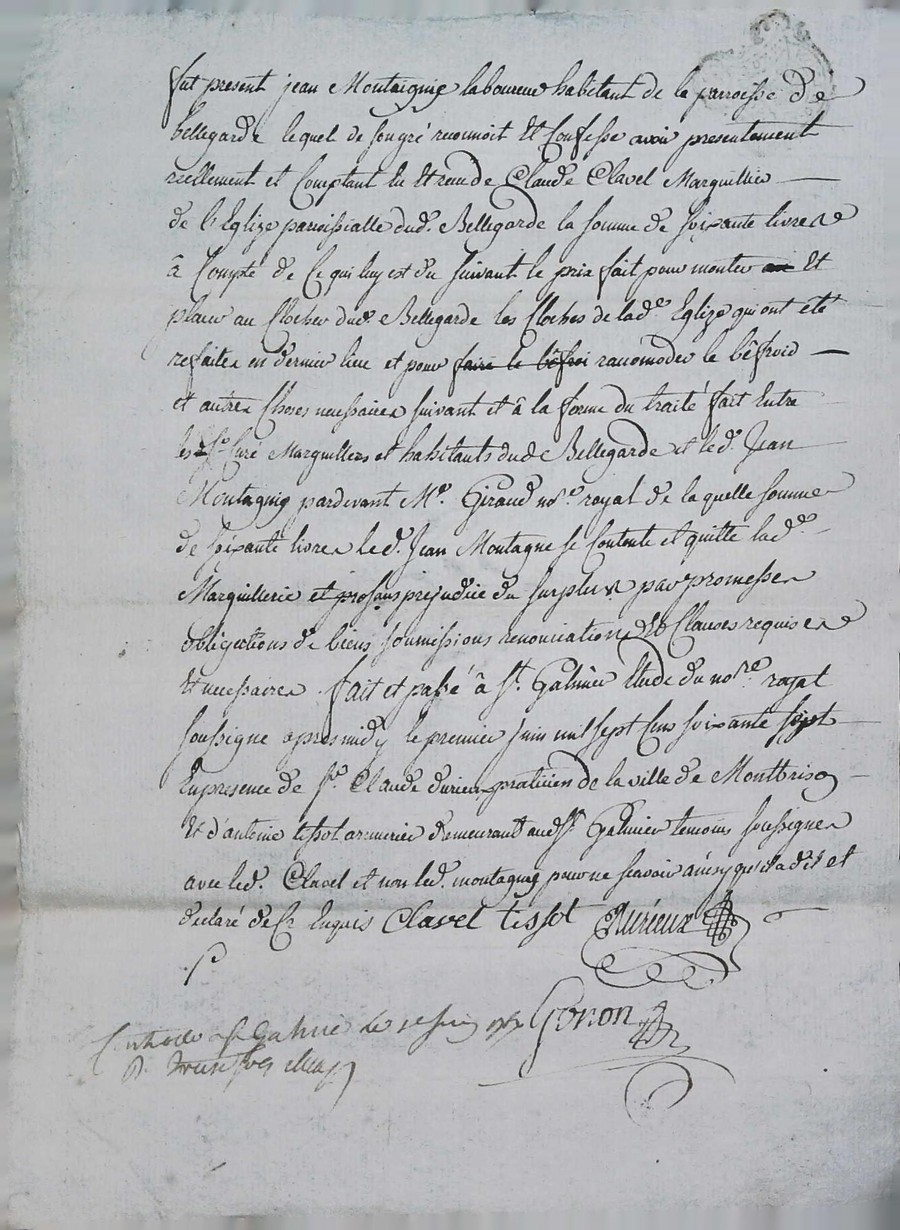 fut present jean Montaignie laboureur habitant de la parroisse de
bellegarde lequel de son gré reconnoit Et Confesse avoir presentement
reellement et Comptant Eu Et receu de Claude Clavel Marguillier
de l'Eglize parroissialle dud. Bellegarde la somme de soixante livres
â Compte de Ce qui luy est du suivant le prix fait pour monter Et
placer au Clocher dud. Bellegarde les Cloches de lade Eglize qui ont été
refaites en dernier lieu et pour faire le bêfroi racomoder le bêfroid
et autres Choses necessaires suivant et â la forme du traité fait Entre
les Sr Curé Marguilliers et habitants dud. Bellegarde et led. Jean
Montagnie pardevant Me. Giraud nore royal de la quelle somme
de soixante livres led. Jean Montagne se Contente et quitte lade.
Marguillerie et pro sans prejudice du surplus par promesses
obligations de biens soumissions renonciations Et Clauses requises
Et necessaires fait et passé â St. Galmier Etude du nore royal
soussigné apres midy le premier juin mil sept Cens soixante sept
En presence de Sr. Claude durieux praticien de la ville de Montbrison
Et d'antoine tissot armurier demeurant aud St Galmier temoins soussignes
avec led. Clavel et non led. montagnie pour ne scavoir ainsy qu'il a dit et
declaré de Ce Enquis Clavel tissot Durieux
Gonon
Controllé a St Galmier le juin
R. treize sols